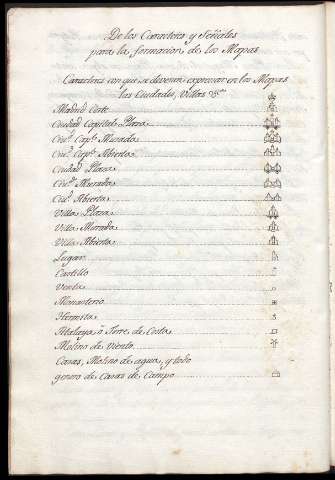 De los Caracteres y Señales
para la formacion de los Mapas
Caracteres con que se deveran expresar en los Mapas
las Ciudades, Villas &c.
Madrid Corte
Ciudad Capital Plaza
Ciu.d Cap.l Murada
Ciu.d Cap.l Abierta
Ciudad Plaza
Ciu.d Murada
Ciu.d Abierta
Villa Plaza
Villa Murada
Villa Abierta
Lugar
Castillo
Venta
Monasterio
Hermita
Atalaya ò Torre de Costa
Molino de Viento
Casas, Molino de agua, y todo
genero de Casas de Campo